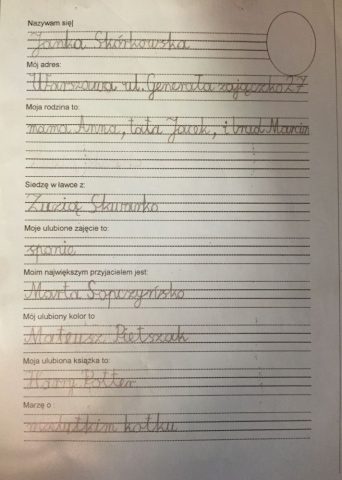 Nazywam się
Janka Skórkowska
Mój adres:
Warszawa ul. Generała zajączka 27
Moja rodzina to:
mama Anna, tata Jacek, i brad Marcin
Siedzę w ławce z:
Zuzią
Moje ulubione zajęcie to:
spanie
Moim największym przyjacielem jest:
Marta Sopczyńska
Mój ulubiony kolor to
Mateusz Pietszak
Moja ulubiona książka to:
Harry Potter
Marzę o :
malutkim kotku